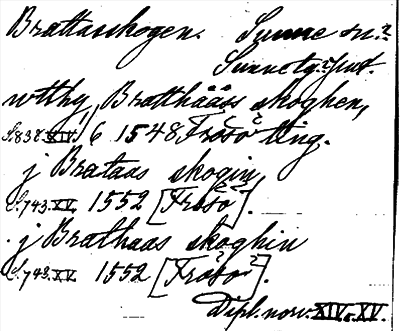 Brattaskogen. Sunne sn.?
Sunne tg. Jmtl.
wtthy Bratthååss skoghen,
S. 838. XIV. 16/6 1548 Frösö ting.
j Brataas skogin,
S. 743. XV. 1552 [Frösö?].
j Brathaas skoghin
S. 743. XV. 1552 [Frösö?].
Dipl. norv. XIV o. XV.